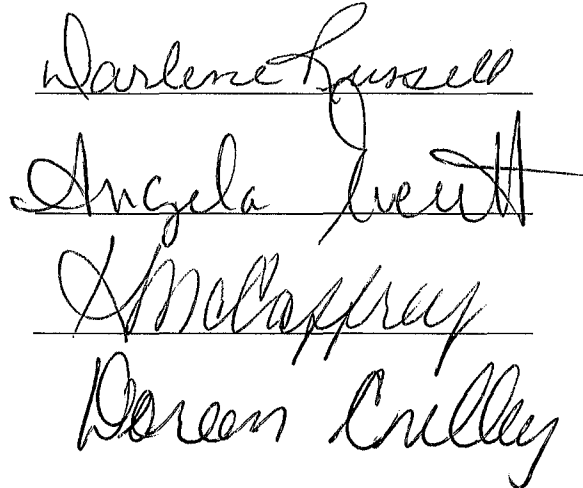 Darlene Russell
Angela
McCaffrey
Doreen Crilley